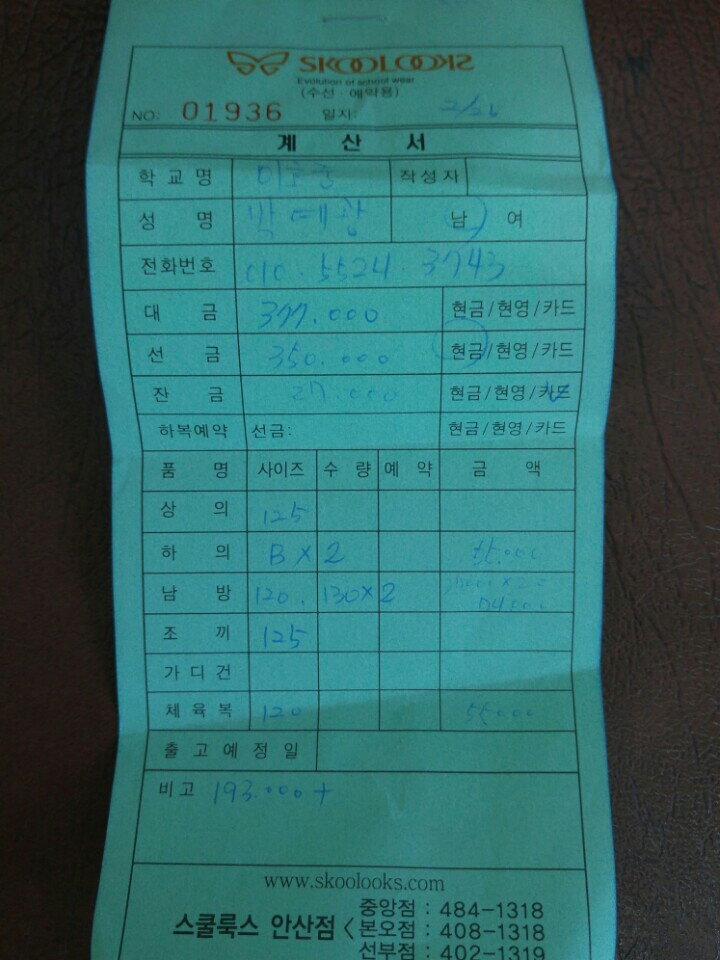 SKOOLOOKS
Evolution of school wear
(수선·예약용)
NO: 01936 일자: 2/26
계 산 서
학교명 작성자
성 명 박예광 남 여
전화번호 010.5524.3743
대 금 377.000 현금/현영/카드
선 금 350.000 현금/현영/카드
잔 금 27.000 현금/현영/카드
하복예약 선금: 현금/현영/카드
품 명 사이즈 수 량 예 약 금 액
상 의 125
하 의 B×2 55.000
남 방 120. 130×2 74000
조 끼 125
가디건
체육복 120 55000
출고예정일
비고 193.000+
www.skoolooks.com
스쿨룩스 안산점 <
중앙점 : 484-1318
본오점 : 408-1318
선부점 : 402-1319